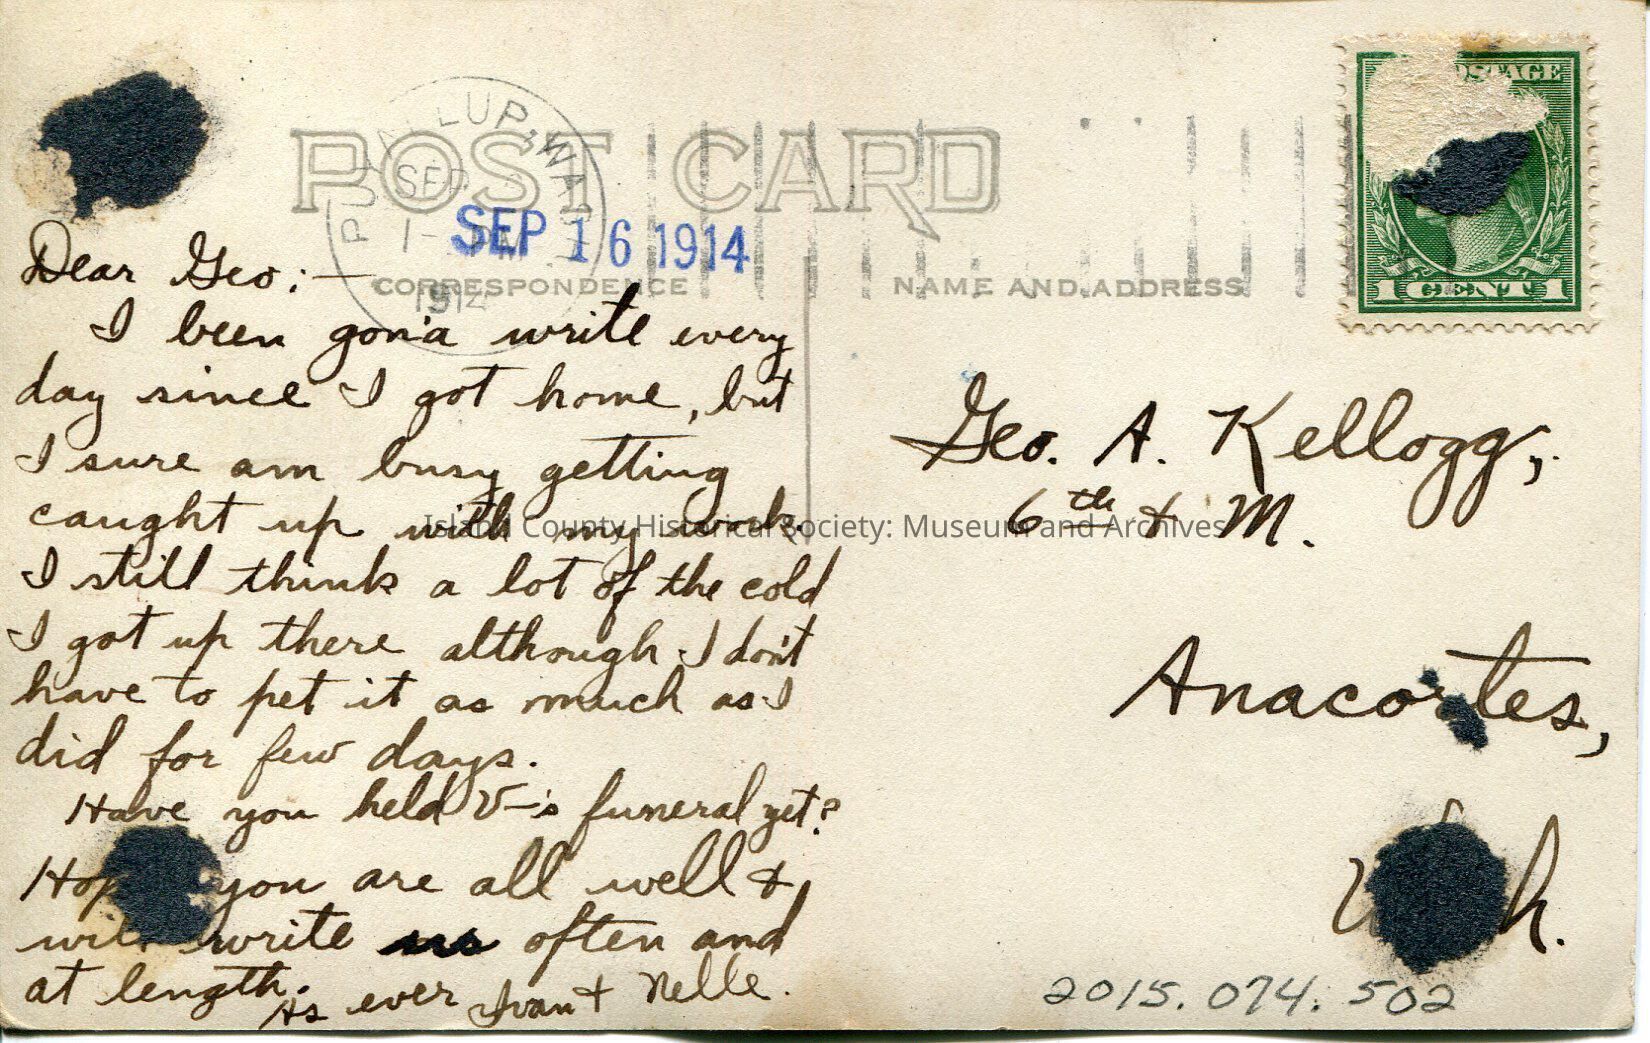 POST CARD
PUYALLUP, WASH.
SEP
1- PM
1914
SEP 16 1914
CORRESPONDENCE
NAME AND ADDRESS
POSTAGE
1 CENT 1
Dear Geo:—
I been gon'a write every
day since I got home, but
I sure am busy getting
caught up with my work.
I still think a lot of the cold
I got up there although I don't
have to pet it as much as I
did for few days.
Have you held V—'s funeral yet?
Hope you are all well &
will write us often and
at length.
As ever Ivan & Nelle.
Geo. A. Kellogg,
6th & M.
Anacortes,
Wash.
2015.074.502
Island County Historical Society: Museum and Archives